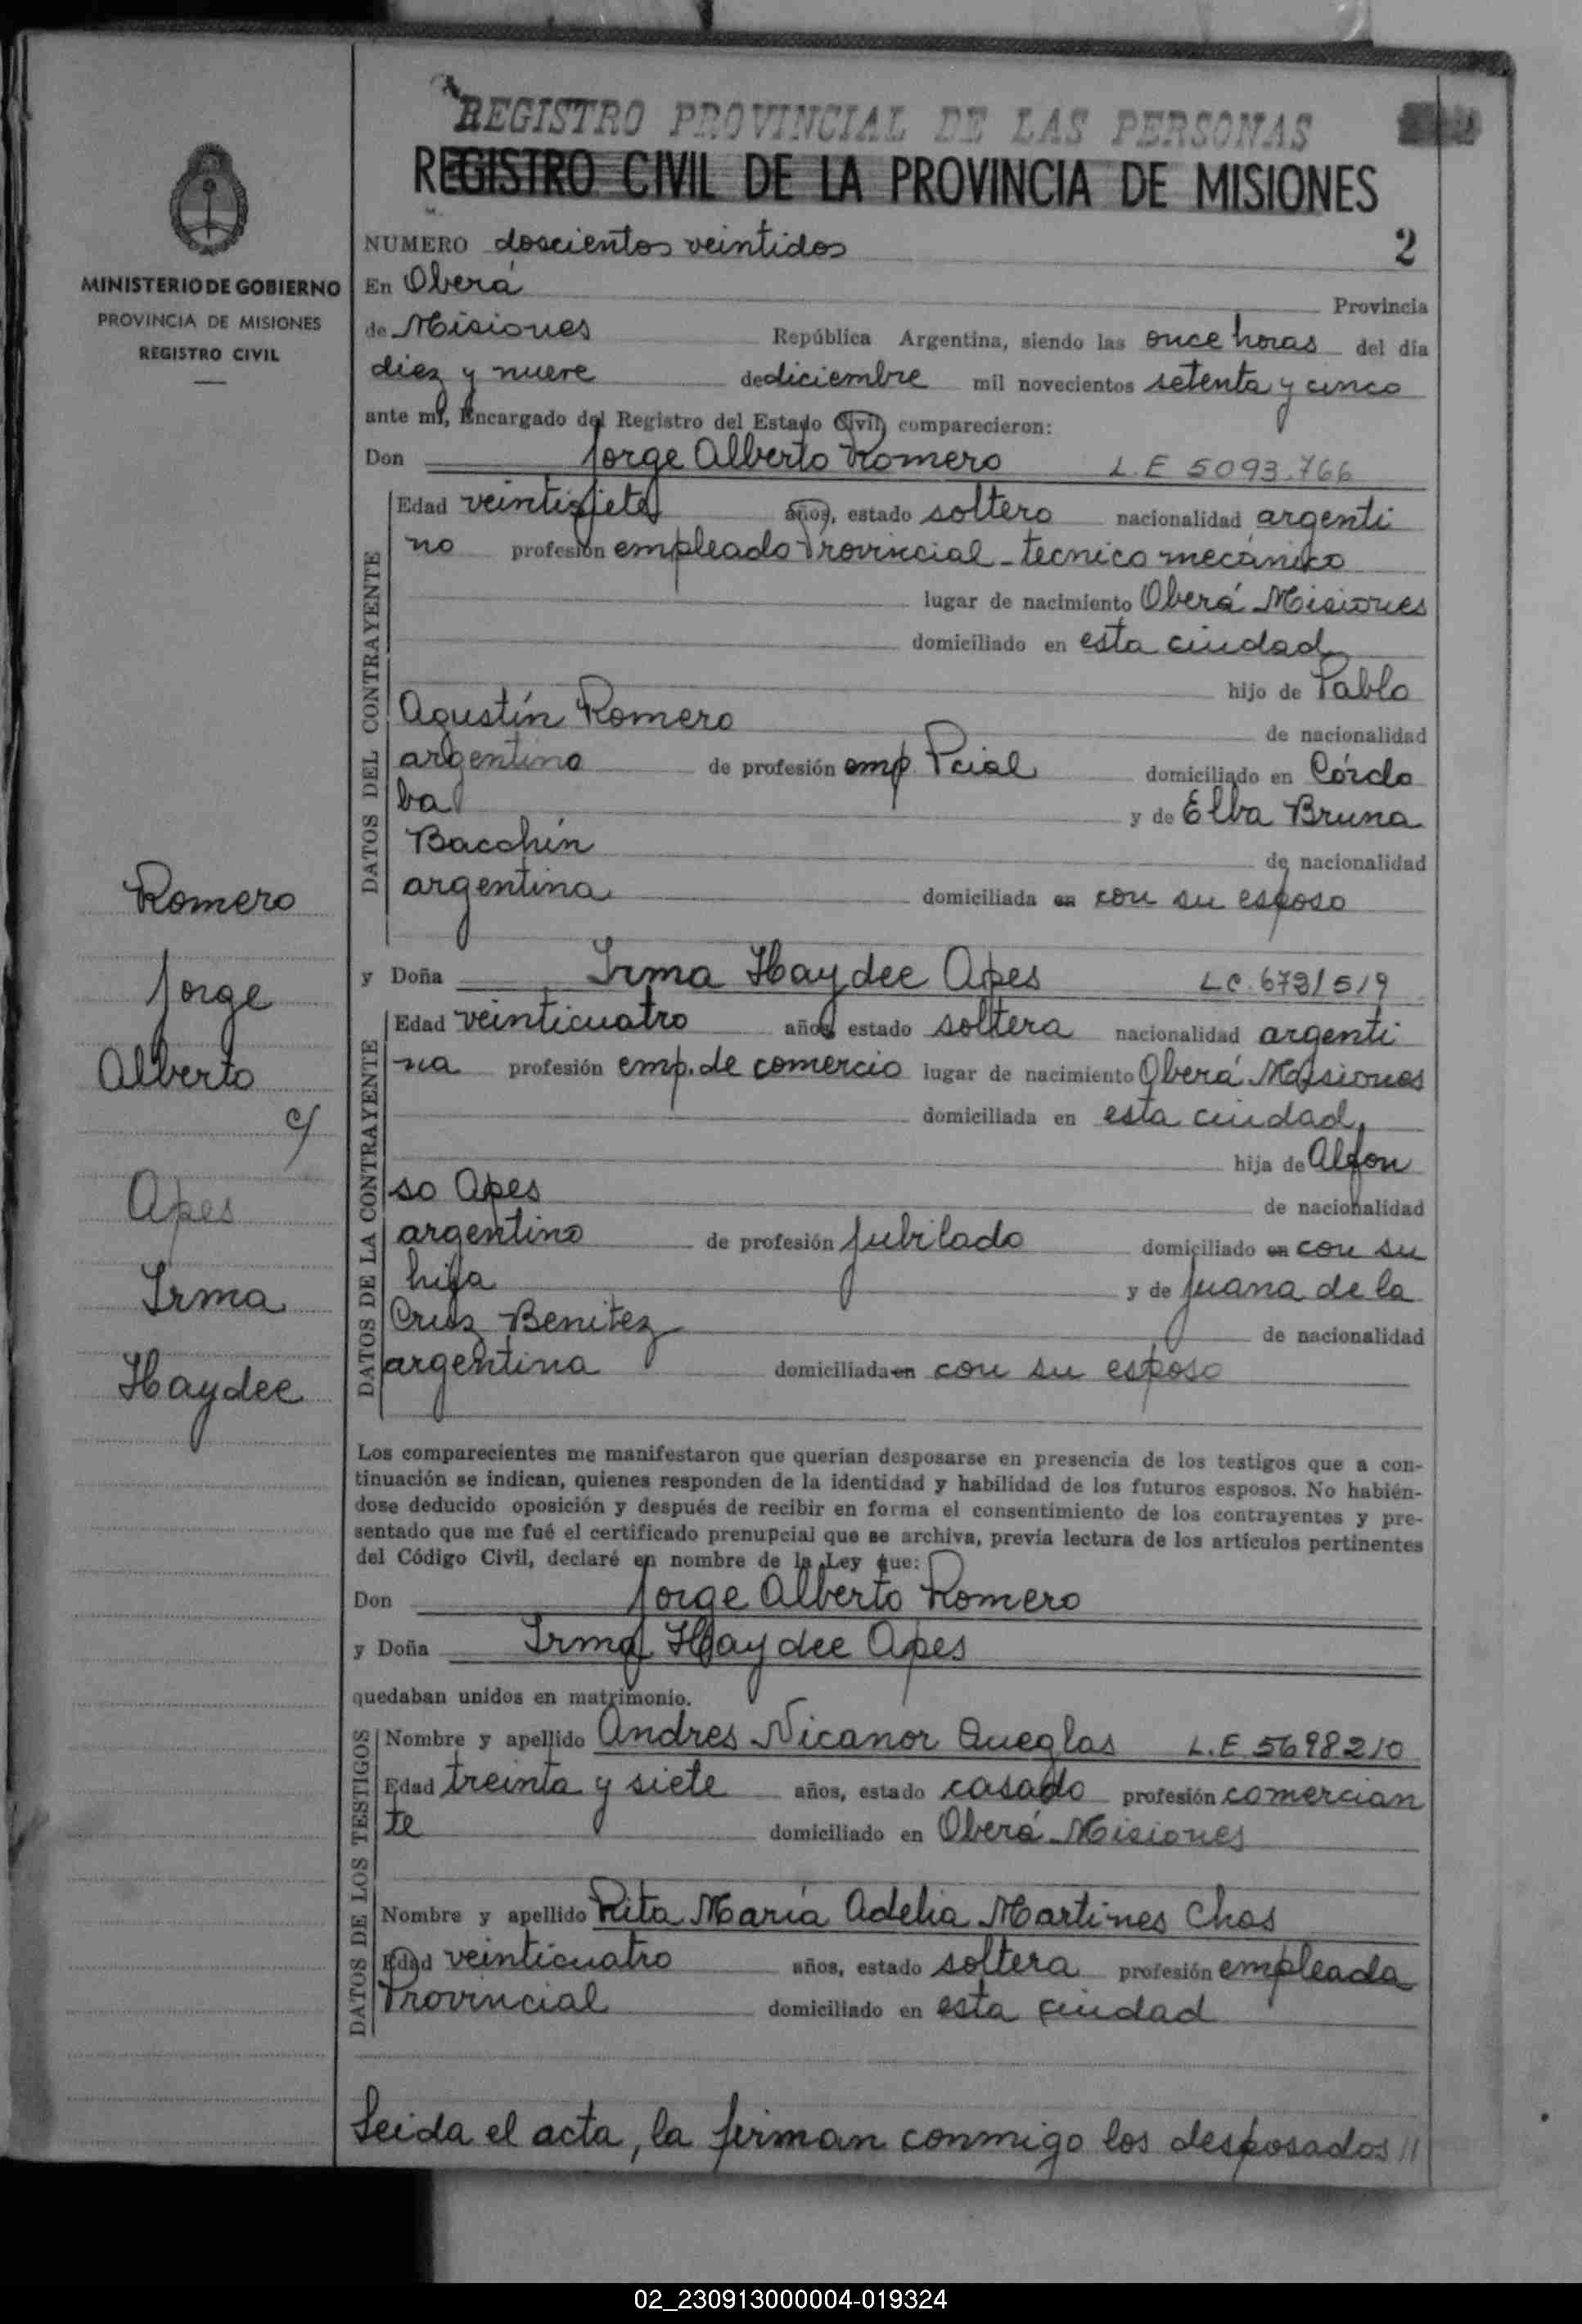 REGISTRO PROVINCIAL DE LAS PERSONAS
REGISTRO CIVIL DE LA PROVINCIA DE MISIONES
MINISTERIO DE GOBIERNO
PROVINCIA DE MISIONES
REGISTRO CIVIL
NUMERO doscientos veintidos 2
En Oberá Provincia
de Misiones República Argentina, siendo las once horas del día
diez y nueve de diciembre mil novecientos setenta y cinco
ante mí, Encargado del Registro del Estado Civil, comparecieron:
Don Jorge Alberto Romero L.E 5093.766
DATOS DEL CONTRAYENTE
Edad veintisiete años, estado soltero nacionalidad argenti
no profesión empleado Provincial - tecnico mecánico
lugar de nacimiento Oberá Misiones
domiciliado en esta ciudad
hijo de Pablo
Agustín Romero de nacionalidad
argentino de profesión emp. Pcial domiciliado en Córdo
ba y de Elba Bruna
Bacchin de nacionalidad
argentina domiciliada en con su esposo
Romero
Jorge
Alberto
c/
Apes
Irma
Haydee
y Doña Irma Haydee Apes LC. 6731519
DATOS DE LA CONTRAYENTE
Edad veinticuatro años estado soltera nacionalidad argenti
na profesión emp. de comercio lugar de nacimiento Oberá Misiones
domiciliada en esta ciudad,
hija de Alfon
so Apes de nacionalidad
argentino de profesión jubilado domiciliado en con su
hija y de Juana de la
Cruz Benitez de nacionalidad
argentina domiciliada en con su esposo
Los comparecientes me manifestaron que querían desposarse en presencia de los testigos que a con-
tinuación se indican, quienes responden de la identidad y habilidad de los futuros esposos. No habién-
dose deducido oposición y después de recibir en forma el consentimiento de los contrayentes y pre-
sentado que me fué el certificado prenupcial que se archiva, previa lectura de los artículos pertinentes
del Código Civil, declaré en nombre de la Ley que:
Don Jorge Alberto Romero
y Doña Irma Haydee Apes
quedaban unidos en matrimonio.
DATOS DE LOS TESTIGOS
Nombre y apellido Andres Nicanor Queglas L.E 5698210
Edad treinta y siete años, estado casado profesión comercian
te domiciliado en Oberá Misiones
Nombre y apellido Rita María Adelia Martines Chas
Edad veinticuatro años, estado soltera profesión empleada
Provincial domiciliado en esta ciudad
Leida el acta, la firman conmigo los desposados //
02_230913000004-019324